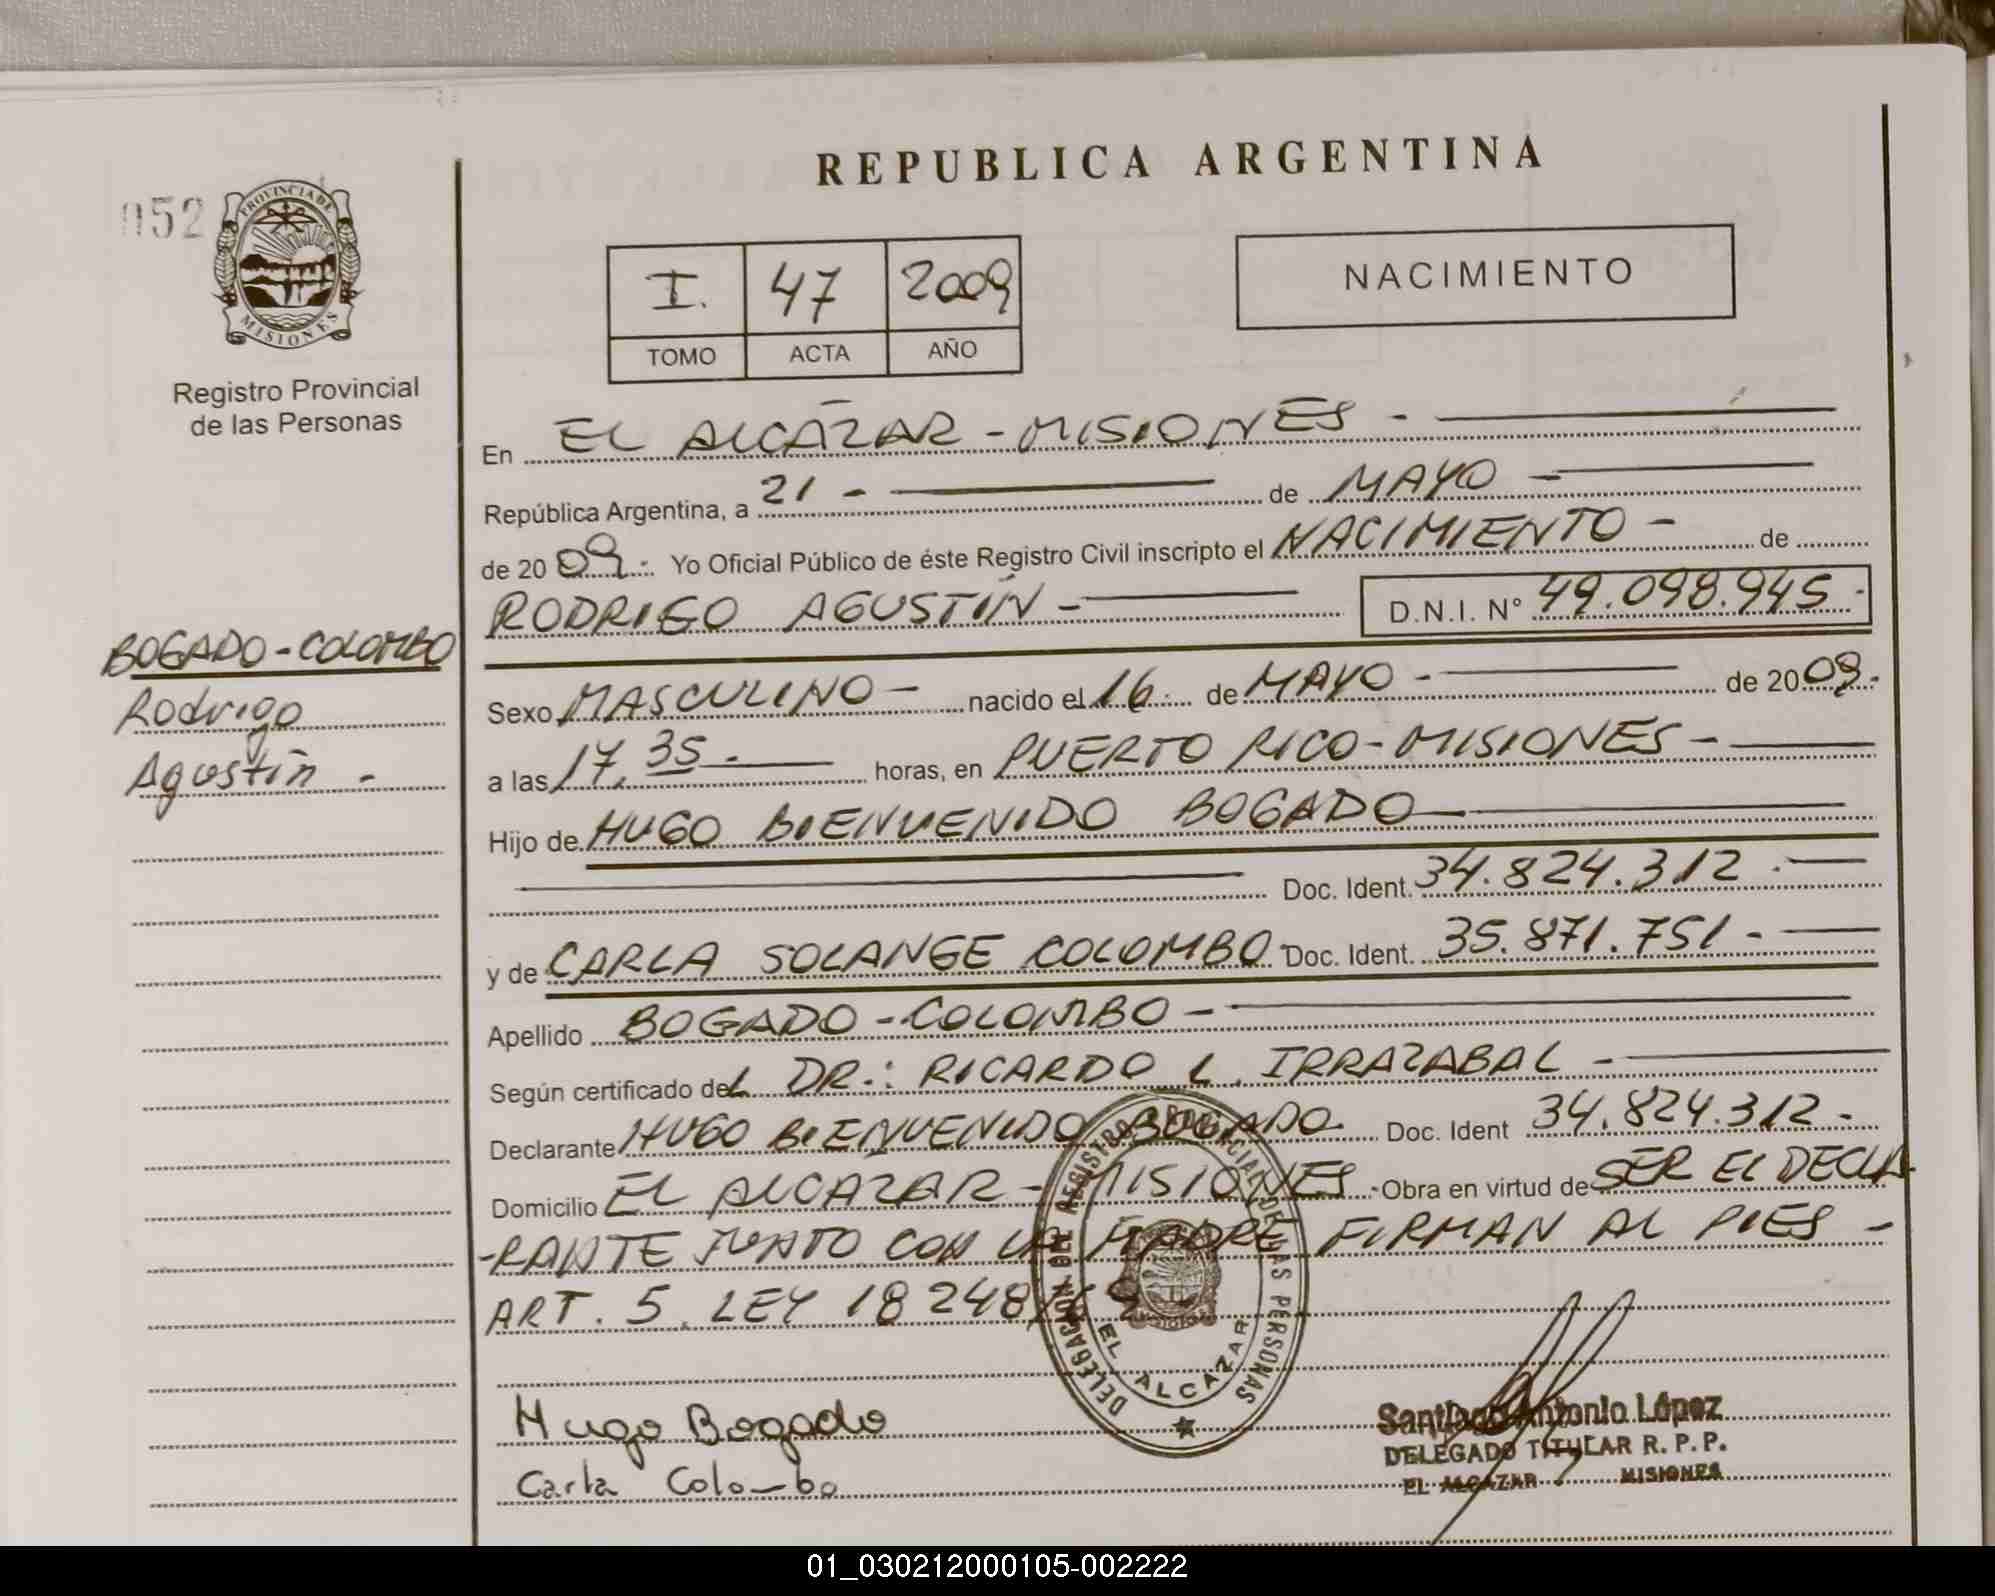 REPUBLICA ARGENTINA
052
PROVINCIA DE
MISIONES
Registro Provincial
de las Personas
I. 47 2009
TOMO ACTA AÑO
NACIMIENTO
En EL ALCÁZAR - MISIONES -
República Argentina, a 21 - de MAYO -
de 2009.- Yo Oficial Público de éste Registro Civil inscripto el NACIMIENTO - de
RODRIGO AGUSTÍN - D.N.I. Nº 49.098.945.-
BOGADO-COLOMBO
Rodrigo
Agustín -
Sexo MASCULINO - nacido el 16.. de MAYO - de 2009.-
a las 17,35 - horas, en PUERTO RICO - MISIONES -
Hijo de HUGO BIENVENIDO BOGADO
Doc. Ident. 34.824.312.-
y de CARLA SOLANGE COLOMBO Doc. Ident. 35.871.751.-
Apellido BOGADO - COLOMBO -
Según certificado del DR.: RICARDO L. IRRAZABAL -
Declarante HUGO BIENVENIDO BOGADO Doc. Ident 34.824.312.-
Domicilio EL ALCÁZAR - MISIONES - Obra en virtud de SER EL DECLA
-RANTE JUNTO CON LA MADRE FIRMAN AL PIES -
ART. 5. LEY 18248/69 -
DELEGACION DEL REGISTRO PROVINCIAL DE LAS PERSONAS
EL ALCAZAR
Hugo Bogado
Carla Colombo
Santiago Antonio López
DELEGADO TITULAR R. P. P.
EL ALCAZAR MISIONES
01_030212000105-002222